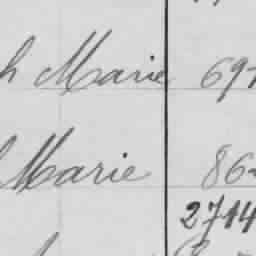 h Marie 697
Marie 86
2714